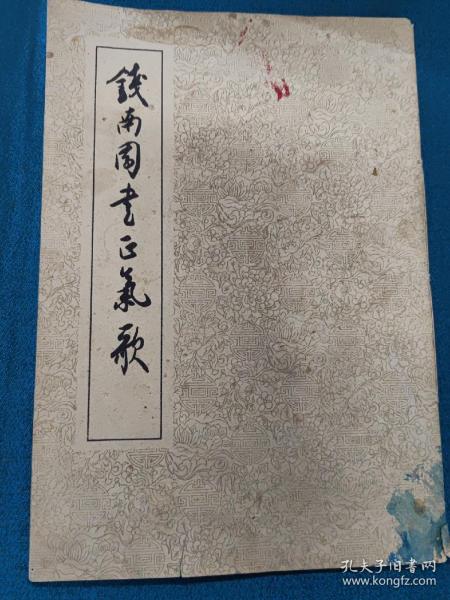 錢南園书正氣歌
孔夫子旧书网
www.kongfz.com